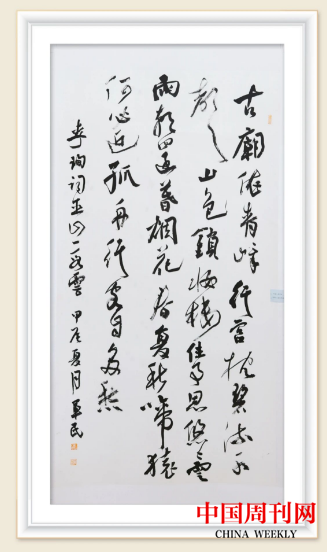 古廟依青嶂行宫枕碧流水
聲山色鎖妝樓往事思悠悠雲
雨朝還暮烟花春復秋啼猿
何必近孤舟行客自多愁
李珣詞巫山一段雲 甲辰夏月
中国周刊网
CHINA WEEKLY